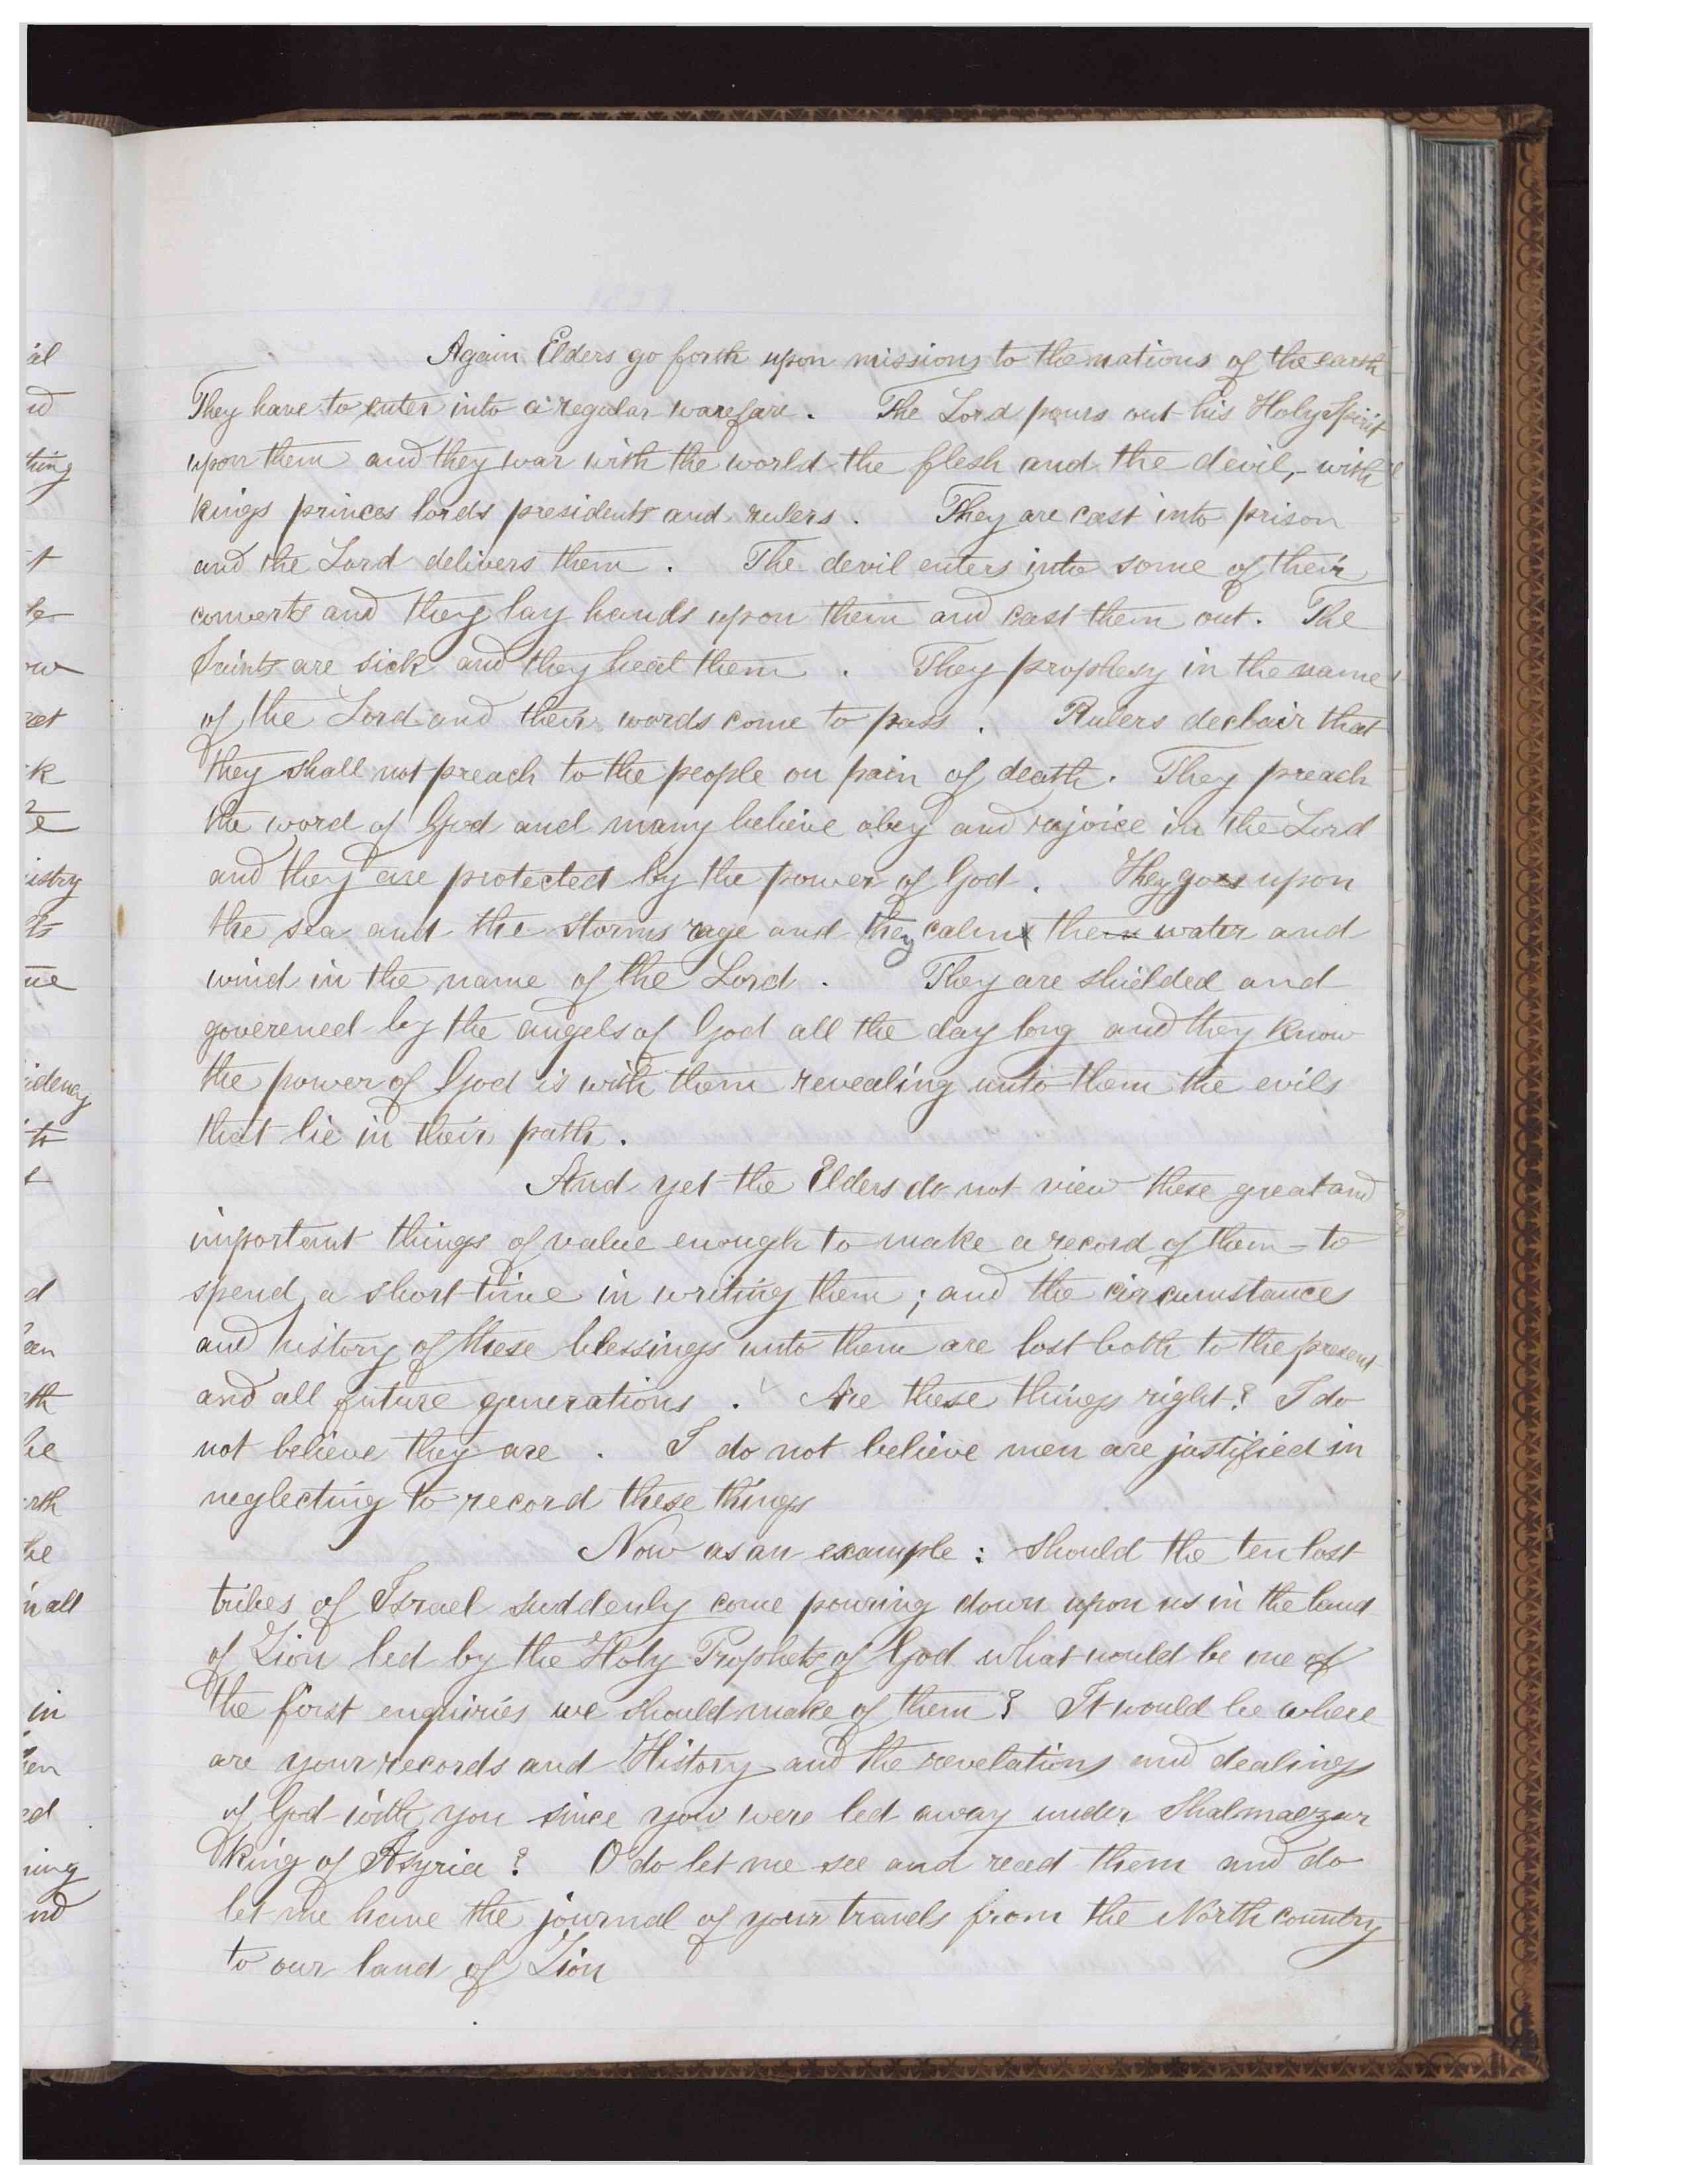 Again Elders go forth upon missions to the nations of the earth
They have to enter into a regular warefare. The Lord pours out his Holy Spirit
upon them and they war with the world the flesh and the devil, - with
kings princes lords presidents and rulers. They are cast into prison
and the Lord delivers them. The devil enters into some of their
converts and they lay hands upon them and cast them out. The
Saints are sick and they heal them. They prophesy in the name
of the Lord and their words come to pass. Rulers declair that
they shall not preach to the people on pain of death. They preach
the word of God and many believe obey and rejoice in the Lord
and they are protected by the power of God. They goes upon
the sea and the storms rage and they calm them water and
wind in the name of the Lord. They are shielded and
goverened by the angels of God all the day long and they know
the power of God is with them revealing unto them the evils
that lie in their path.
And yet the Elders do not view these great and
important things of value enough to make a record of them - to
spend a short time in writing them; and the circumstances
and history of these blessings unto them are lost both to the present
and all future generations. Are these things right? I do
not believe they are. I do not believe men are justified in
neglecting to record these things
Now as an example: should the ten lost
tribes of Israel suddenly come pouring down upon us in the land
of Zion led by the Holy Prophets of God what would be one of
the first enquiries we should make of them? It would be where
are your records and History and the revelations and dealings
of God with you since you were led away under Shalmaezur
King of Asyria? O do let me see and read them and do
let me have the journal of your travels from the North country
to our land of Zion